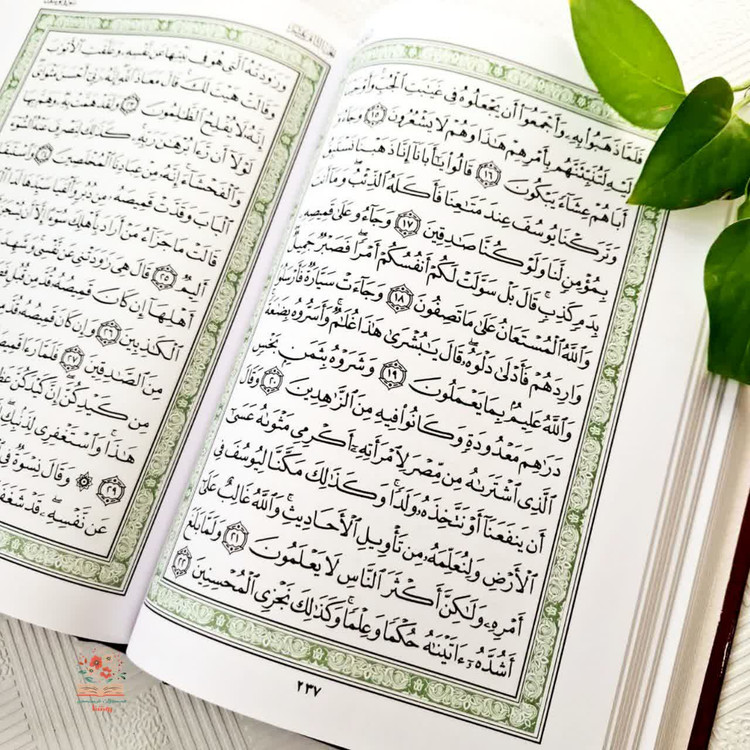 فَلَمَّا ذَهَبُواْ بِهِۦ وَأَجْمَعُوٓاْ أَن يَجْعَلُوهُ فِي غَيَٰبَتِ ٱلْجُبِّ وَأَوْحَيْنَآ
إِلَيْهِ لَتُنَبِّئَنَّهُم بِأَمْرِهِمْ هَٰذَا وَهُمْ لَا يَشْعُرُونَ ١٥ وَجَآءُوٓ
أَبَاهُمْ عِشَآءً يَبْكُونَ ١٦ قَالُواْ يَٰٓأَبَانَآ إِنَّا ذَهَبْنَا نَسْتَبِقُ
وَتَرَكْنَا يُوسُفَ عِندَ مَتَٰعِنَا فَأَكَلَهُ ٱلذِّئْبُ وَمَآ أَنتَ
بِمُؤْمِنٍ لَّنَا وَلَوْ كُنَّا صَٰدِقِينَ ١٧ وَجَآءُو عَلَىٰ قَمِيصِهِۦ
بِدَمٍ كَذِبٍ قَالَ بَلْ سَوَّلَتْ لَكُمْ أَنفُسُكُمْ أَمْرًا فَصَبْرٌ جَمِيلٌ
وَٱللَّهُ ٱلْمُسْتَعَانُ عَلَىٰ مَا تَصِفُونَ ١٨ وَجَآءَتْ سَيَّارَةٌ فَأَرْسَلُواْ
وَارِدَهُمْ فَأَدْلَىٰ دَلْوَهُۥ قَالَ يَٰبُشْرَىٰ هَٰذَا غُلَٰمٌ وَأَسَرُّوهُ بِضَٰعَةً
وَٱللَّهُ عَلِيمٌۢ بِمَا يَعْمَلُونَ ١٩ وَشَرَوْهُ بِثَمَنٍۭ بَخْسٍ
دَرَٰهِمَ مَعْدُودَةٍ وَكَانُواْ فِيهِ مِنَ ٱلزَّٰهِدِينَ ٢٠ وَقَالَ
ٱلَّذِي ٱشْتَرَىٰهُ مِن مِّصْرَ لِٱمْرَأَتِهِۦٓ أَكْرِمِي مَثْوَىٰهُ عَسَىٰٓ
أَن يَنفَعَنَآ أَوْ نَتَّخِذَهُۥ وَلَدًا وَكَذَٰلِكَ مَكَّنَّا لِيُوسُفَ فِي
ٱلْأَرْضِ وَلِنُعَلِّمَهُۥ مِن تَأْوِيلِ ٱلْأَحَادِيثِ وَٱللَّهُ غَالِبٌ عَلَىٰٓ
أَمْرِهِۦ وَلَٰكِنَّ أَكْثَرَ ٱلنَّاسِ لَا يَعْلَمُونَ ٢١ وَلَمَّا بَلَغَ
أَشُدَّهُۥٓ ءَاتَيْنَٰهُ حُكْمًا وَعِلْمًا وَكَذَٰلِكَ نَجْزِي ٱلْمُحْسِنِينَ ٢٢
٢٣٧
وَرَٰوَدَتْهُ ٱلَّتِي هُوَ فِي بَيْتِهَا عَن نَّفْسِهِۦ وَغَلَّقَتِ ٱلْأَبْوَٰبَ
وَقَالَتْ هَيْتَ لَكَ قَالَ مَعَاذَ ٱللَّهِ إِنَّهُۥ رَبِّيٓ أَحْسَنَ مَثْوَايَ
إِنَّهُۥ لَا يُفْلِحُ ٱلظَّٰلِمُونَ ٢٣ وَلَقَدْ هَمَّتْ بِهِۦ وَهَمَّ بِهَا
لَوْلَآ أَن رَّءَا بُرْهَٰنَ رَبِّهِۦ كَذَٰلِكَ لِنَصْرِفَ عَنْهُ ٱلسُّوٓءَ
وَٱلْفَحْشَآءَ إِنَّهُۥ مِنْ عِبَادِنَا ٱلْمُخْلَصِينَ ٢٤
ٱلْبَابَ وَقَدَّتْ قَمِيصَهُۥ مِن دُبُرٍ وَأَلْفَيَا سَيِّدَهَا لَدَا
قَالَتْ مَا جَزَآءُ مَنْ أَرَادَ بِأَهْلِكَ سُوٓءًا إِلَّآ أَن يُسْجَنَ
أَلِيمٌ ٢٥ قَالَ هِيَ رَٰوَدَتْنِي عَن نَّفْسِي وَشَهِدَ
أَهْلِهَآ إِن كَانَ قَمِيصُهُۥ قُدَّ مِن قُبُلٍ
ٱلْكَٰذِبِينَ ٢٦ وَإِن كَانَ قَمِيصُهُۥ قُدَّ مِن
مِنَ ٱلصَّٰدِقِينَ ٢٧ فَلَمَّا رَءَا قَمِيصَهُۥ
مِن كَيْدِكُنَّ إِنَّ كَيْدَكُنَّ
هَٰذَا وَٱسْتَغْفِرِي لِذَنۢبِكِ
٢٩ وَقَالَ نِسْوَةٌ فِي
عَن نَّفْسِهِۦ قَدْ شَغَفَهَا